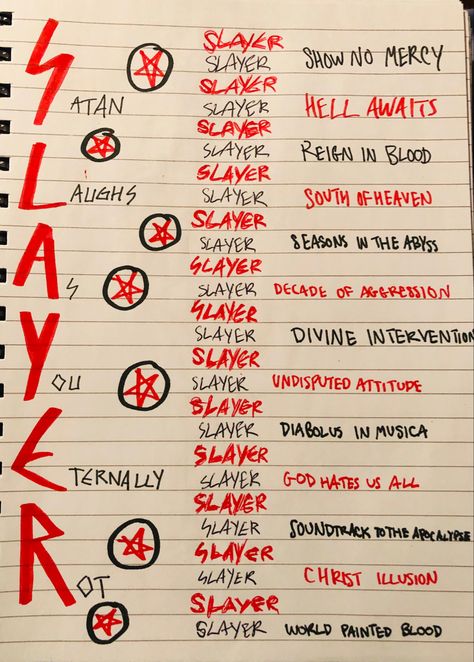 SATAN
LAUGHS
AS
YOU
ETERNALLY
ROT
SLAYER
SLAYER SHOW NO MERCY
SLAYER
SLAYER HELL AWAITS
SLAYER
SLAYER REIGN IN BLOOD
SLAYER
SLAYER SOUTH OF HEAVEN
SLAYER
SLAYER SEASONS IN THE ABYSS
SLAYER
SLAYER DECADE OF AGGRESSION
SLAYER
SLAYER DIVINE INTERVENTION
SLAYER
SLAYER UNDISPUTED ATTITUDE
SLAYER
SLAYER DIABOLUS IN MUSICA
SLAYER
SLAYER GOD HATES US ALL
SLAYER
SLAYER SOUNDTRACK TO THE APOCALYPSE
SLAYER
SLAYER CHRIST ILLUSION
SLAYER
SLAYER WORLD PAINTED BLOOD